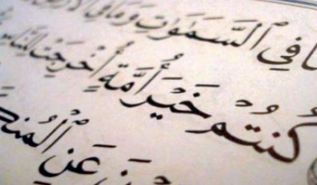 فِي ٱلسَّمَٰوَٰتِ وَمَا فِي
كُنتُمْ خَيْرَ أُمَّةٍ أُخْرِجَتْ لِلنَّاسِ
عَنِ ٱلْمُنكَ